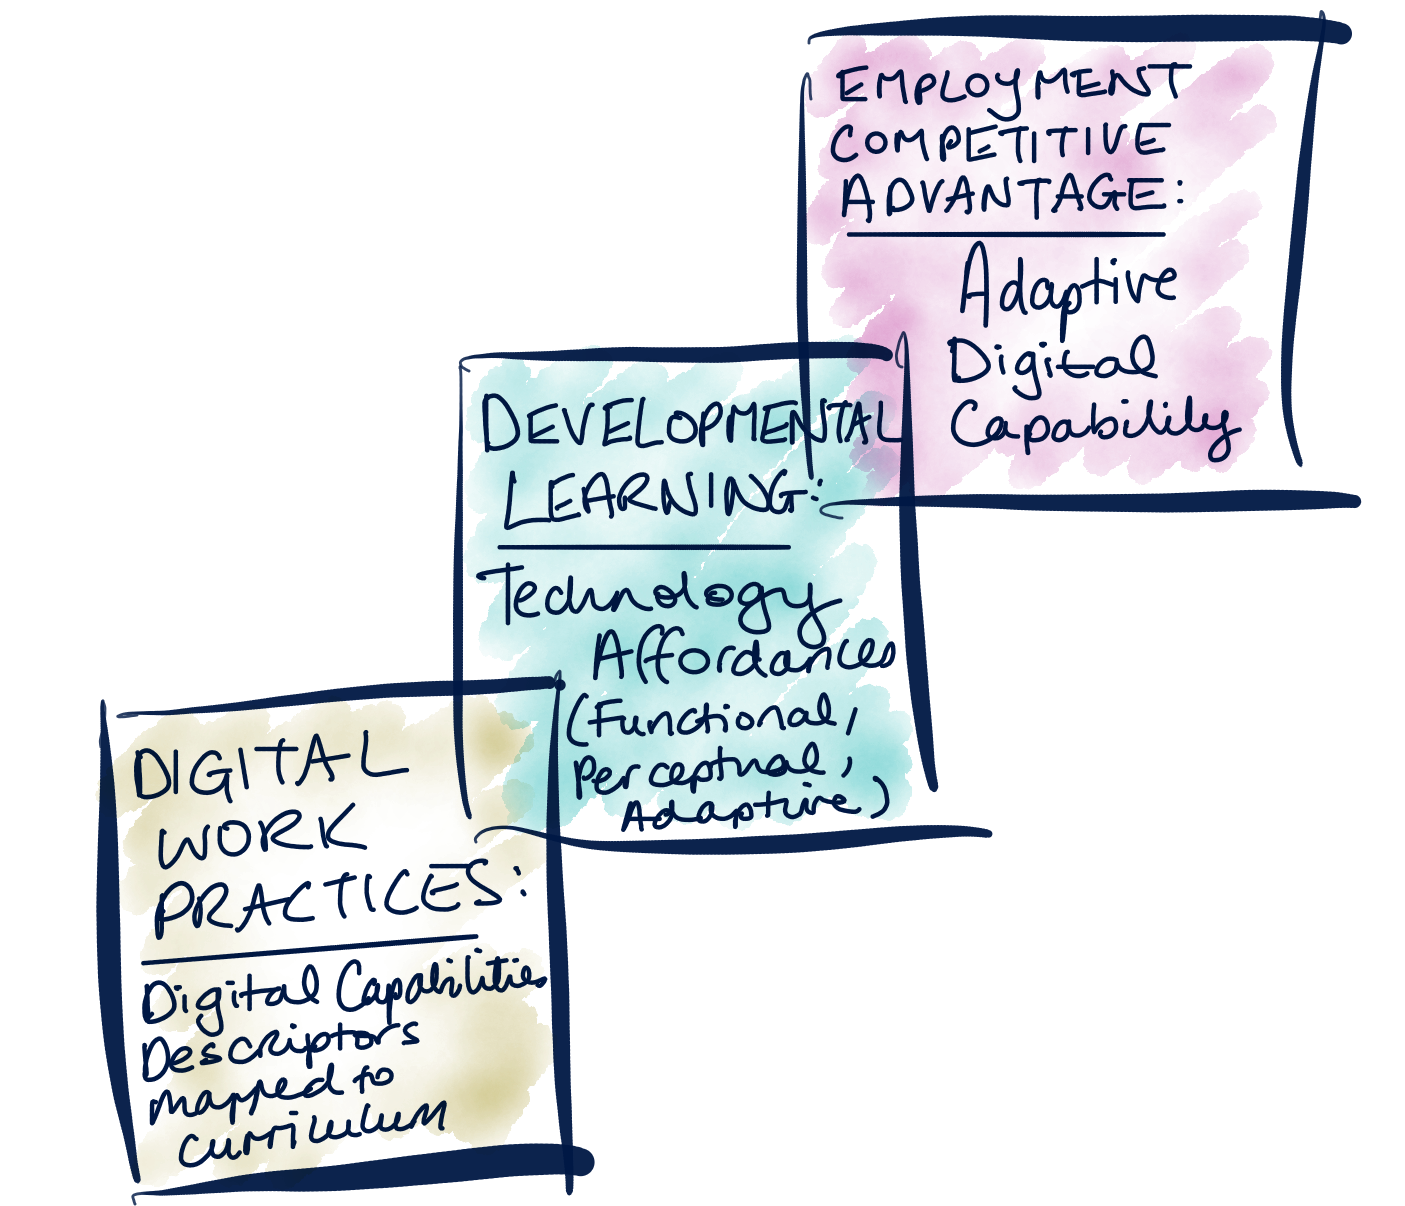 EMPLOYMENT
COMPETITIVE
ADVANTAGE:
Adaptive
Digital
Capability
DEVELOPMENTAL
LEARNING:
Technology
Affordances
(Functional,
Perceptual,
Adaptive)
DIGITAL
WORK
PRACTICES:
Digital Capabilities
Descriptors
mapped to
curriculum